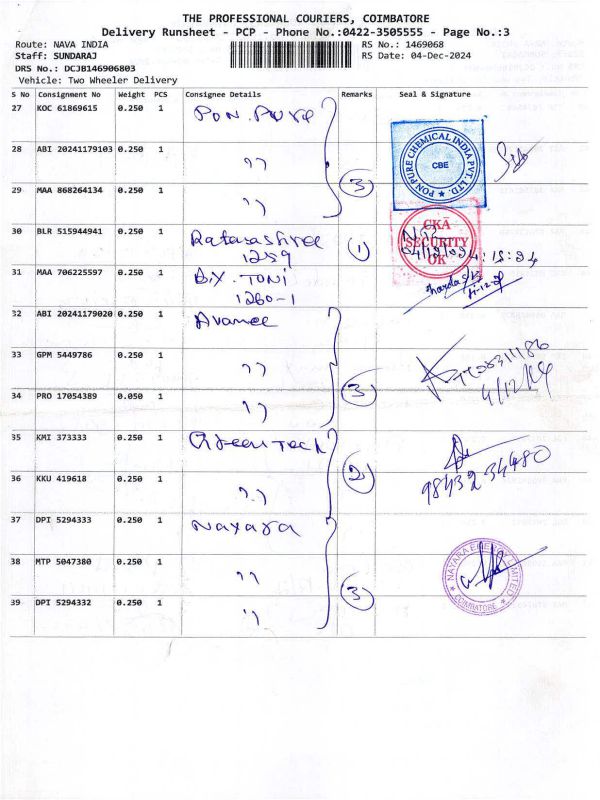 THE PROFESSIONAL COURIERS, COIMBATORE
Delivery Runsheet - PCP - Phone No.:0422-3505555 - Page No.:3
Route: NAVA INDIA RS No.: 1469068
Staff: SUNDARAJ RS Date: 04-Dec-2024
DRS No.: DCJB146906803
Vehicle: Two Wheeler Delivery
S No Consignment No Weight PCS Consignee Details Remarks Seal & Signature
27 KOC 61869615 0.250 1 Pon. Pure
28 ABI 20241179103 0.250 1 ,,
PON PURE CHEMICAL INDIA PVT. LTD. ★
CBE
29 MAA 868264134 0.250 1 ,, 3
30 BLR 515944941 0.250 1 1
1259
CKA
SECURITY
OK
31 MAA 706225597 0.250 1 B.Y. TONI
1260-1
32 ABI 20241179020 0.250 1 Avanee
33 GPM 5449786 0.250 1 ,,
34 PRO 17054389 0.050 1 ,, 3
4/12/24
35 KMI 373333 0.250 1 Green Tech
36 KKU 419618 0.250 1 ,, 2
98432 34480
37 DPI 5294333 0.250 1 Nayara
38 MTP 5047380 0.250 1 ,,
NAYARA ENERGY LIMITED
★ COIMBATORE ★
39 DPI 5294332 0.250 1 ,, 3